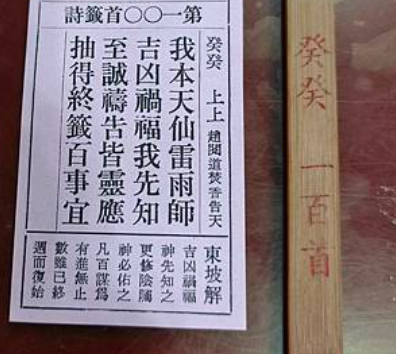 第一〇〇首籤詩
癸癸 上上 趙閱道焚香告天
我本天仙雷雨師
吉凶禍福我先知
至誠禱告皆靈應
抽得終籤百事宜
東坡解
吉凶禍福
神先知之
更修陰騭
神必佑之
凡百謀爲
有進無止
數雖已終
週而復始
癸癸 一百首